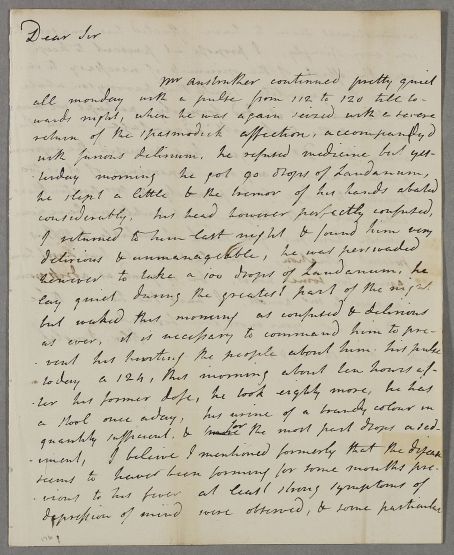 Dear Sir
Mr Anstruther continued pretty quiet
all monday with a pulse from 112 to 120 till to-
wards night, when he was again seized with a severe
return of the spasmodick affection, accompany'd
with furious delirium, he refused medicine but yes-
terday morning he got 90 drops of Laudanum,
he slept a little & the tremor of his hands abated
considerably, his head however perfectly confused,
I returned to him last night & found him very
delirious & unmanageable, he was perswaded
however to take a 100 drops of Laudanum, he
lay quiet during the greatest part of the night
but waked this morning as confused & delirious
as ever, it is necessary to command him to pre-
-vent his hurting the people about him. his pulse
today a 124, this morning about ten hours af-
-ter his former dose, he took eighty more, he has
a stool once aday, his urine of a brandy colour in
quantity sufficient, & for the most part drops a sed-
-iment, I believe I mentioned formerly that the disease
seems to have been forming for some months pre-
-vious to his fever at least strong symptoms of
depression of mind were observed, & some particular